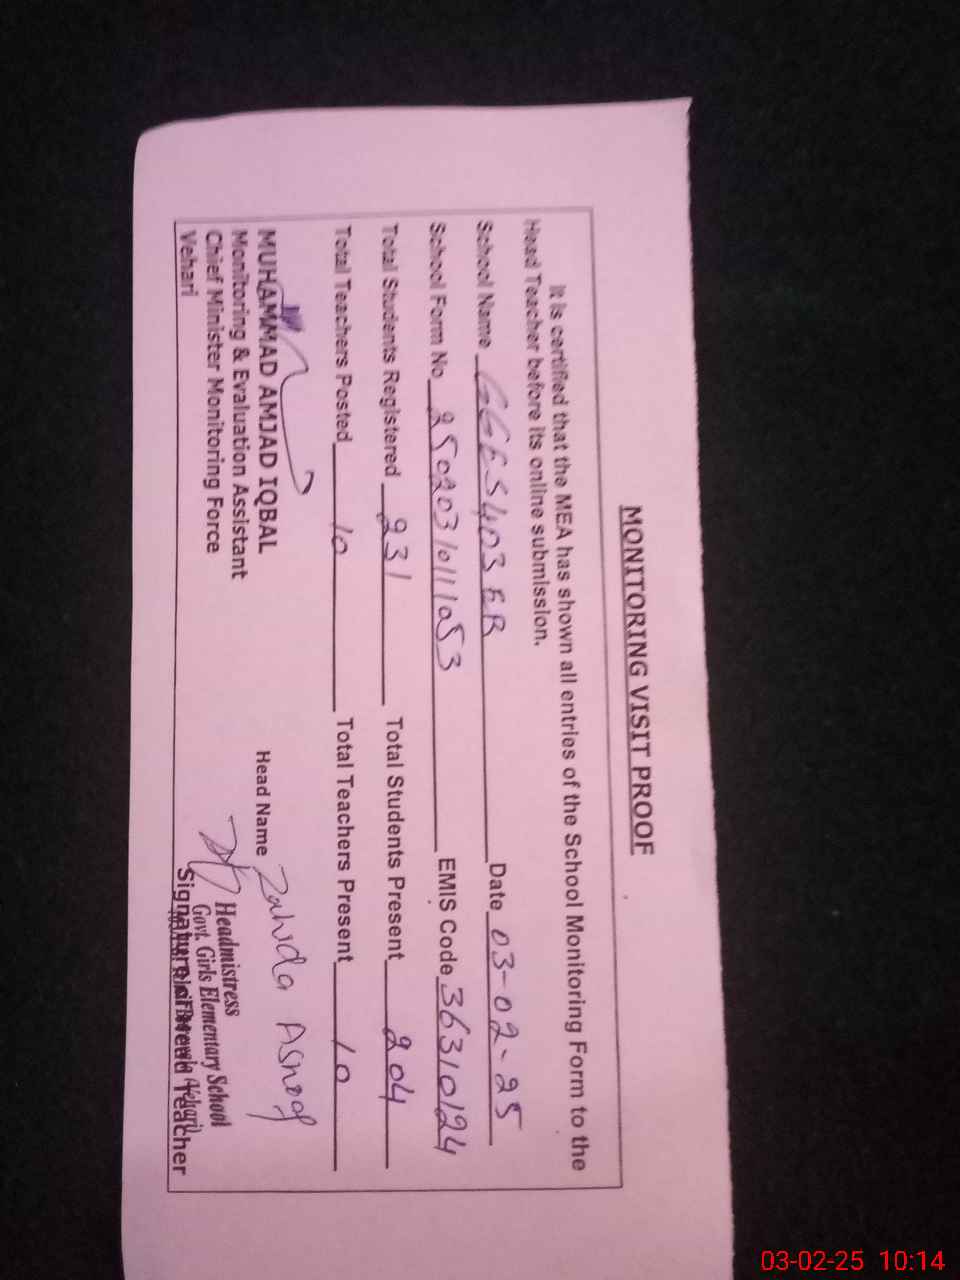 MONITORING VISIT PROOF
It is certified that the MEA has shown all entries of the School Monitoring Form to the
Head Teacher before its online submission.
School Name GGES 403 EB Date 03-02-25
School Form No 250203101111053 EMIS Code 36310124
Total Students Registered 231 Total Students Present 204
Total Teachers Posted 10 Total Teachers Present 10
Head Name Zahida Ashraf
MUHAMMAD AMJAD IQBAL
Monitoring & Evaluation Assistant
Chief Minister Monitoring Force
Vehari
Headmistress
Govt. Girls Elementary School
Signature of Head Teacher
03-02-25 10:14